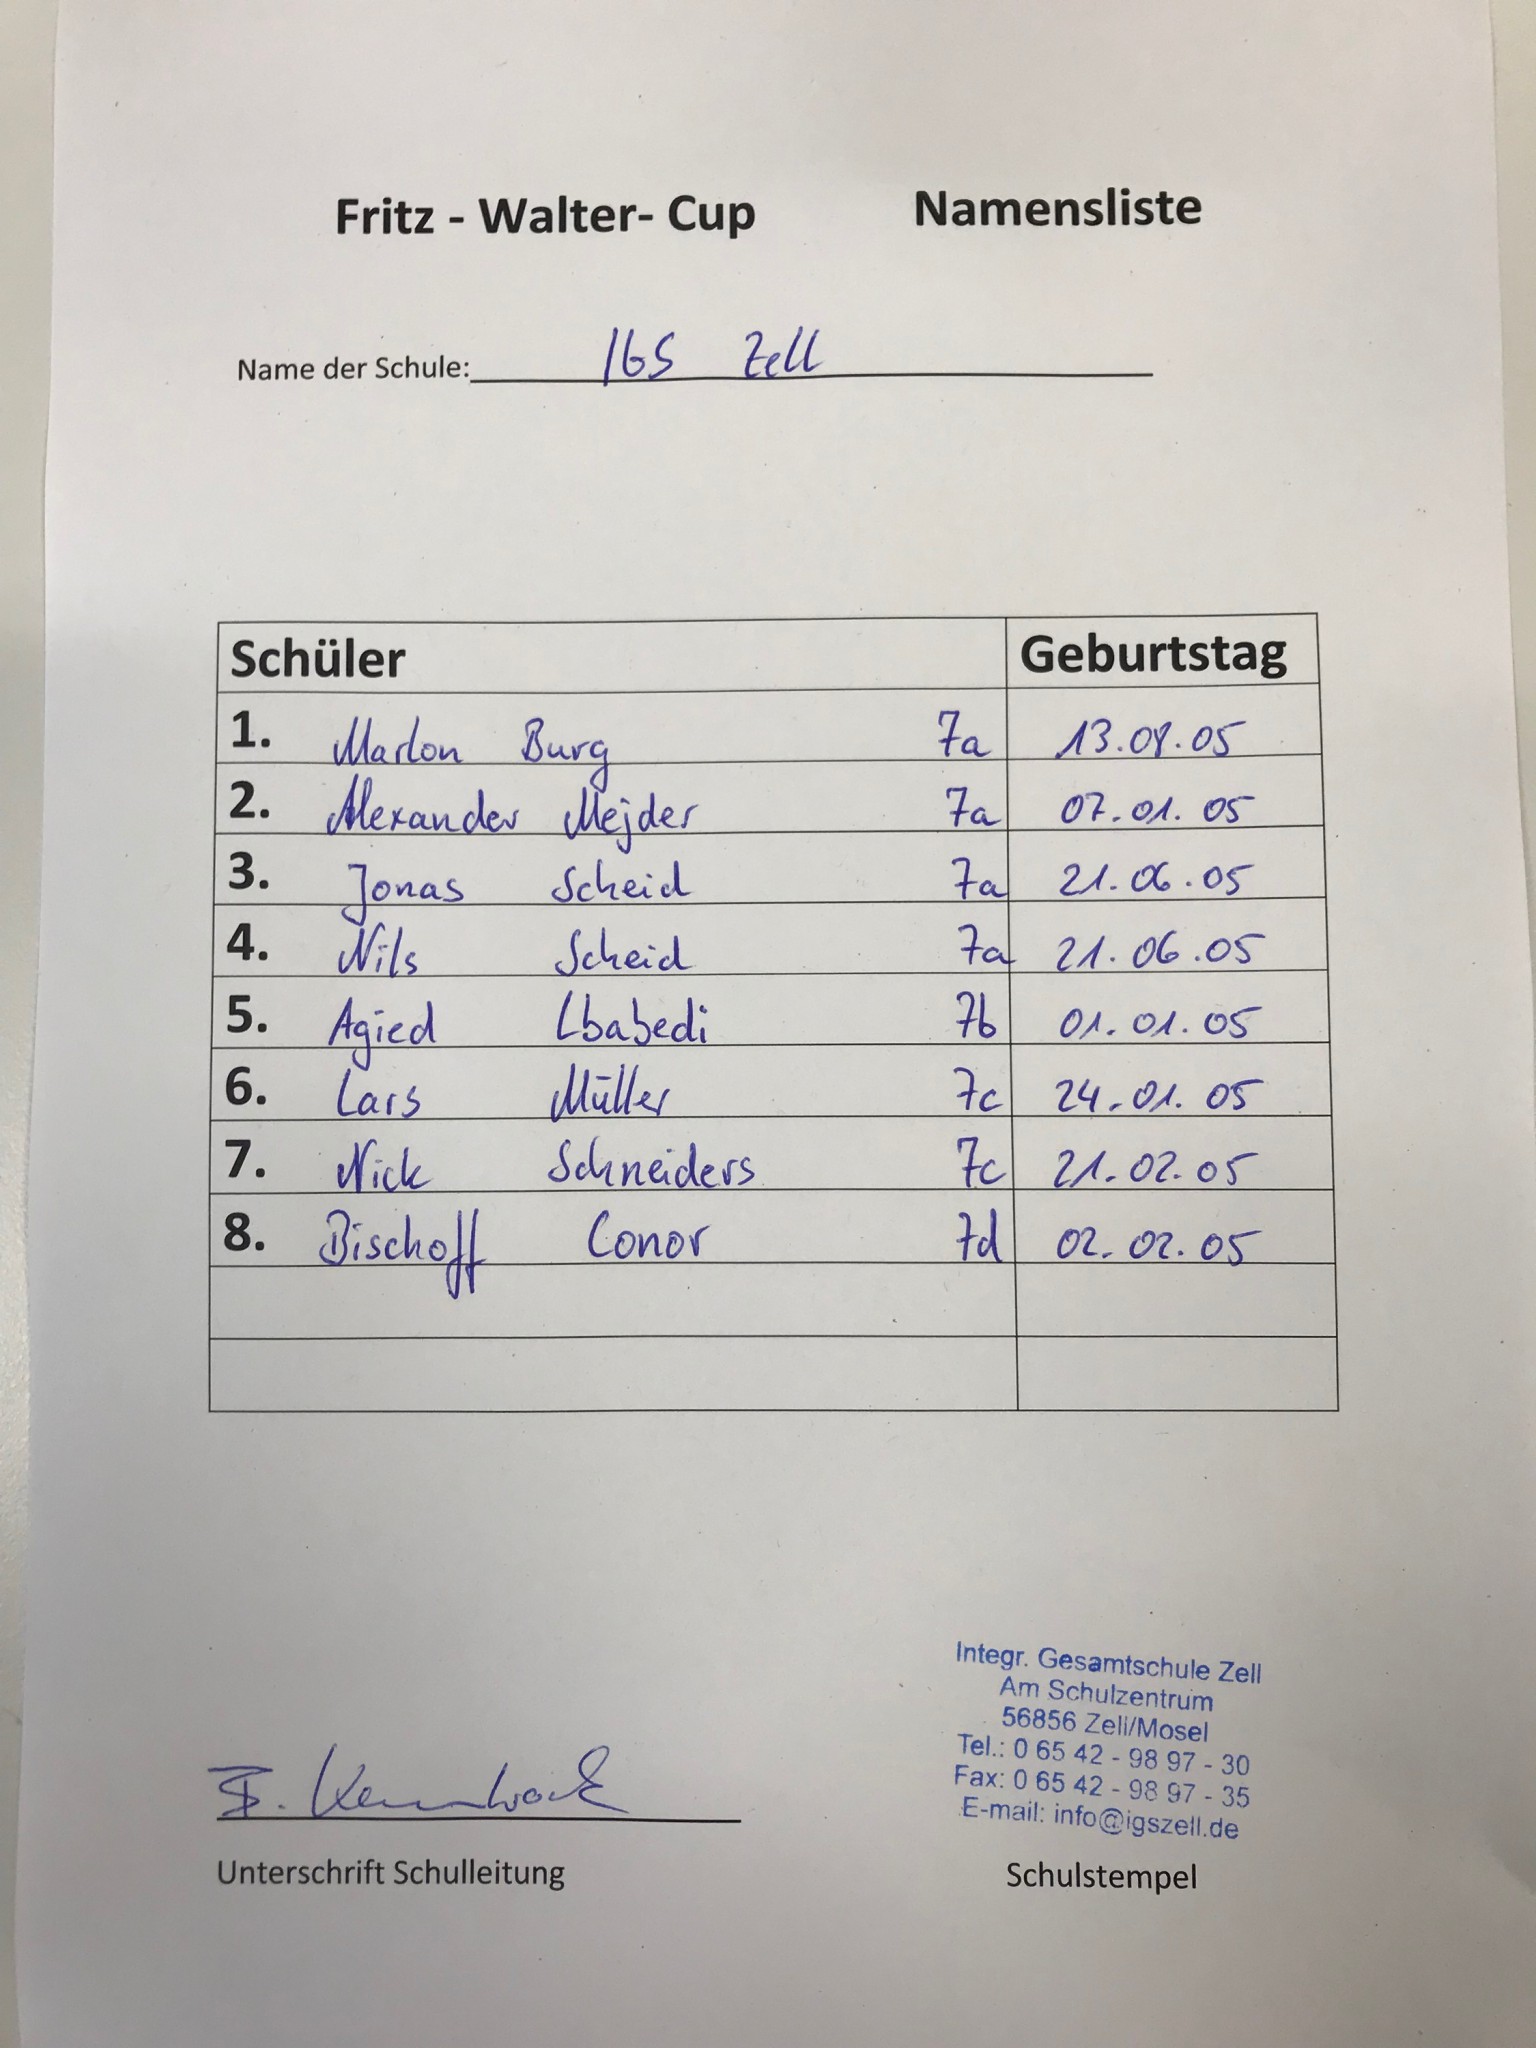 Fritz - Walter- Cup Namensliste
Name der Schule: IGS Zell
Schüler Geburtstag
1. Marlon Burg 7a 13.08.05
2. Alexander Mejder 7a 07.01.05
3. Jonas Scheid 7a 21.06.05
4. Nils Scheid 7a 21.06.05
5. Agied Lbabedi 7b 01.01.05
6. Lars Müller 7c 24.01.05
7. Nick Schneiders 7c 21.02.05
8. Bischoff Conor 7d 02.02.05
Integr. Gesamtschule Zell
Am Schulzentrum
56856 Zell/Mosel
Tel.: 0 65 42 - 98 97 - 30
Fax: 0 65 42 - 98 97 - 35
E-mail: info@igszell.de
Unterschrift Schulleitung Schulstempel